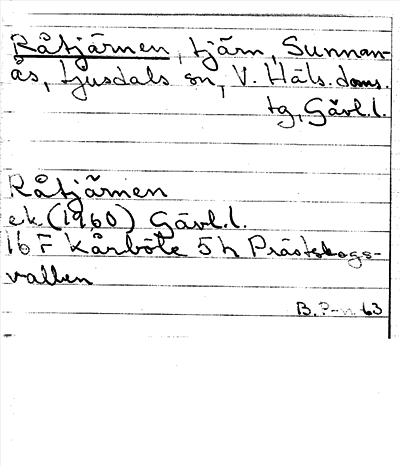 Råtjärnen, tjärn, Sunnan-
ås, Ljusdals sn, V. Häls. doms.
tg, Gävl.l.
Råtjärnen
ek. (1960) Gävl.l.
16 F Kårböle 5 h Prästskogs-
vallen
B. 63